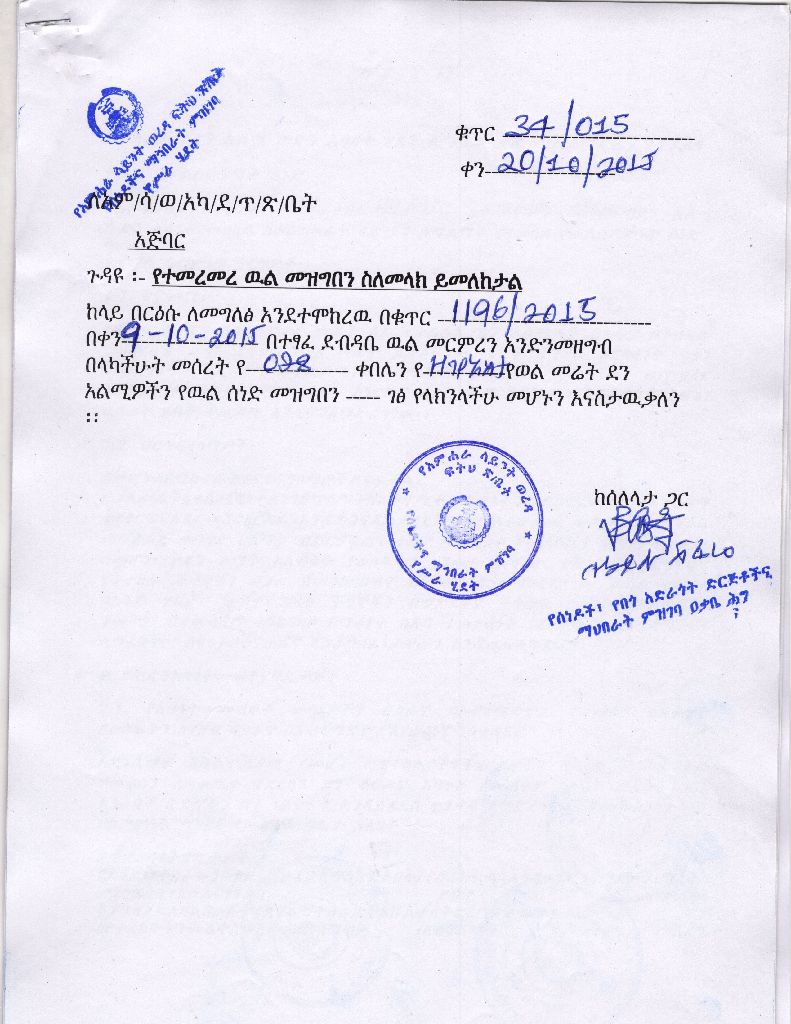 የአምሐራ ሳይንት ወረዳ ፍትህ ጽ/ቤት
የሰነዶችና ማኅበራት ምዝገባ
የሥራ ሂደት
ቁጥር 34/015
ቀን 20/10/2015
ለአም/ሳ/ወ/አካ/ደ/ጥ/ጽ/ቤት
አጅባር
ጉዳዩ ፡- የተመረመረ ዉል መዝግበን ስለመላክ ይመለከታል
ከላይ በርዕሱ ለመግለፅ እንደተሞከረዉ በቁጥር 1196/2015
በቀን 9-10-2015 በተፃፈ ደብዳቤ ዉል መርምረን እንድንመዘግብ
በላካችሁት መሰረት የ 028 ቀበሌን የ የወል መሬት ደን
አልሚዎችን የዉል ሰነድ መዝግበን ----- ገፅ የላክንላችሁ መሆኑን እናስታዉቃለን
፡፡
የአምሐራ ሳይንት ወረዳ
ፍትህ ጽ/ቤት
የሰነዶችና ማኅበራት ምዝገባ
የሥራ ሂደት
ከሰለላታ ጋር
የሰነዶች፣ የበጎ አድራጎት ድርጅቶችና
ማህበራት ምዝገባ ዐቃቤ ሕግ